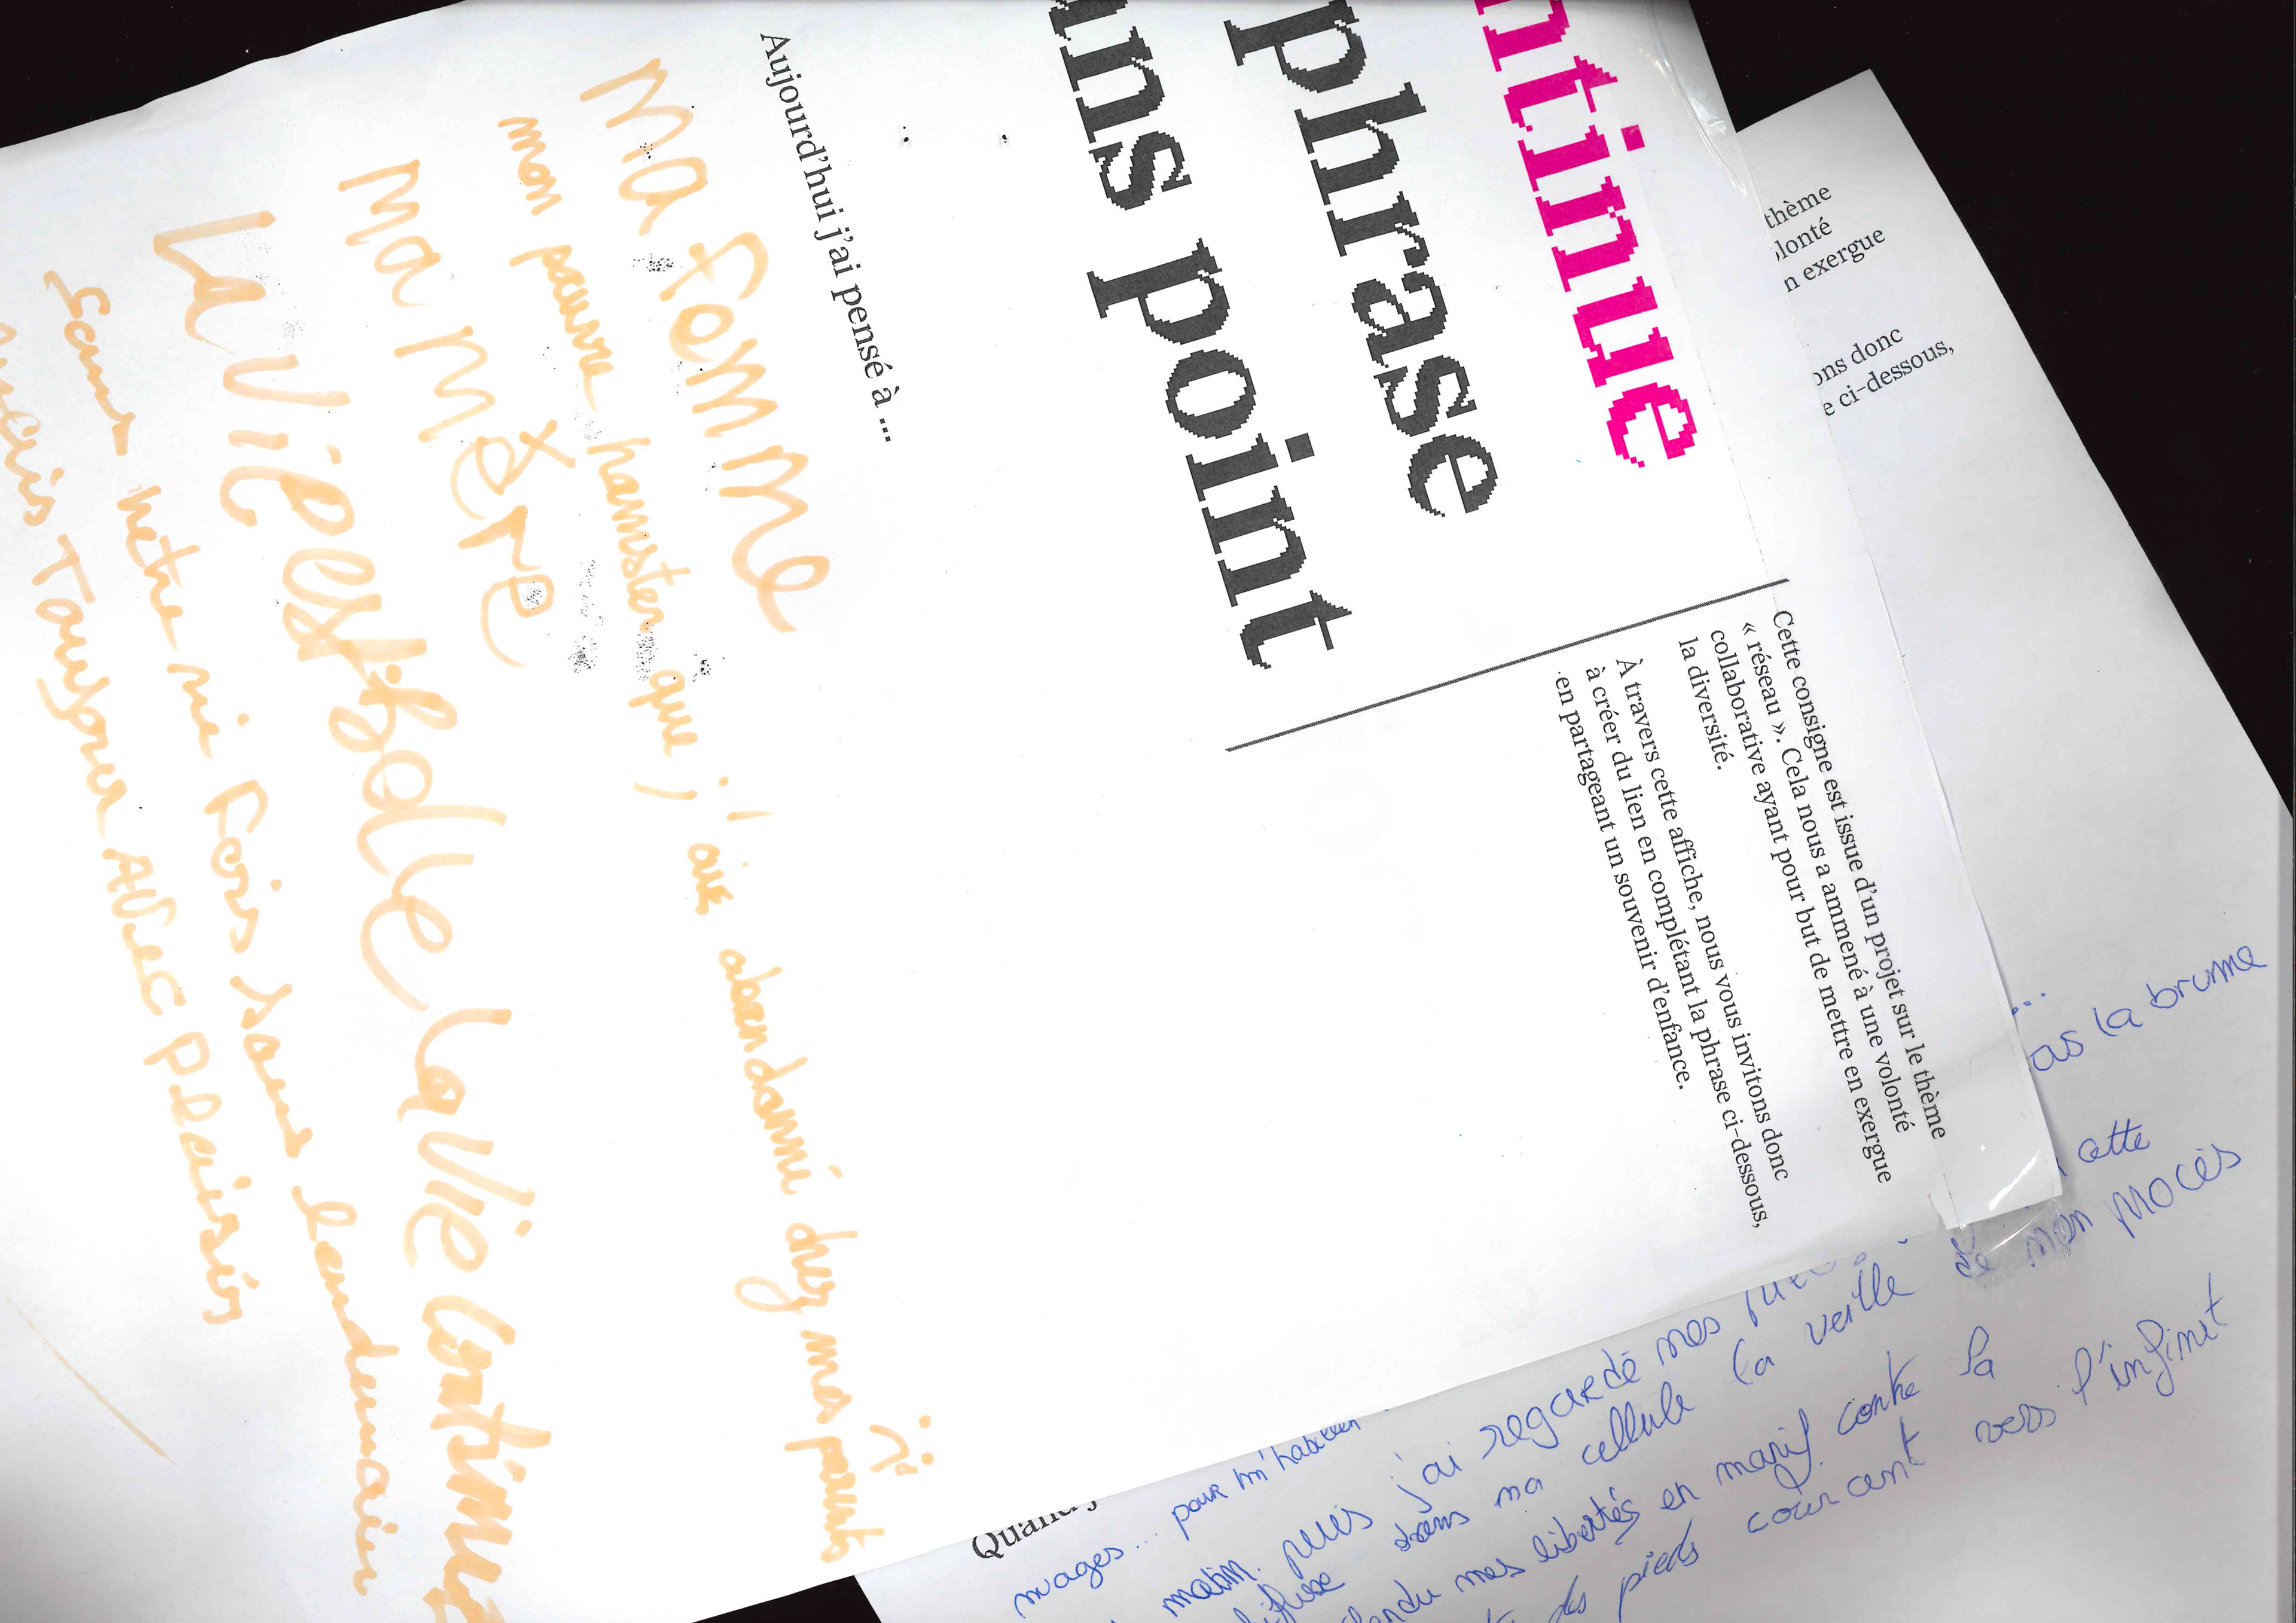 ntinue
phrase
ns point
Cette consigne est issue d'un projet sur le thème
« réseau ». Cela nous a ammené à une volonté
collaborative ayant pour but de mettre en exergue
la diversité.
À travers cette affiche, nous vous invitons donc
à créer du lien en complétant la phrase ci-dessous,
en partageant un souvenir d'enfance.
Aujourd'hui j'ai pensé à ...
Ma femme
mon pauvre hamster que j'ai abandonné chez mes parents
Ma Mère
La Vie est belle La Vie continue
sans
fois sans lendemain
Toujour AVEC Plaisir
thème
lonté
n exergue
ons donc
e ci-dessous,
...
as la brume
cette
nuages... pour m'habiller
matin. puis j'ai regardé mes
dans ma cellule la veille de mon procès
mes libertés en manif contre la
des pieds courant vers l'infinit